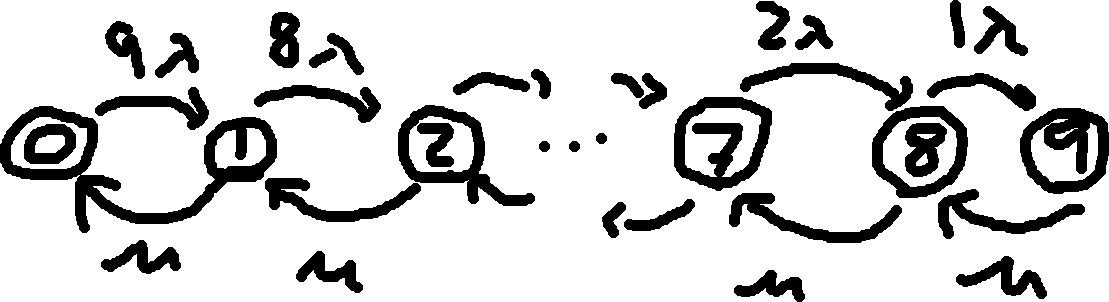 9λ 8λ 2λ 1λ
0 1 2 ... 7 8 9
μ μ μ μ